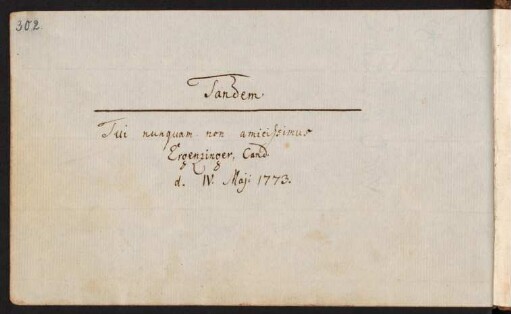 302
Tandem.
Tui nunquam non amicissimus
Ergenzinger, Cand.
d. IV. Maj. 1773.